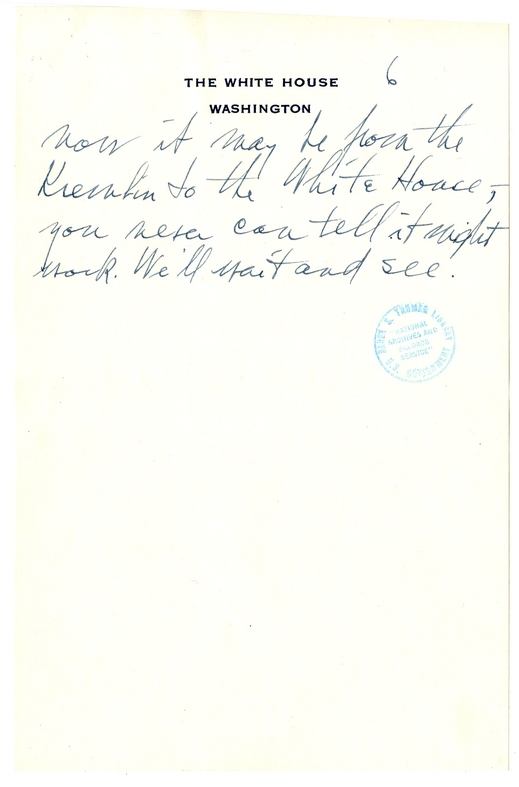 6
THE WHITE HOUSE
WASHINGTON
now it may be from the
Kremlin to the White House,-
you never can tell it might
work. We'll wait and see.
HARRY S. TRUMAN LIBRARY
"NATIONAL
ARCHIVES AND
RECORDS
SERVICE"
U.S. GOVERNMENT